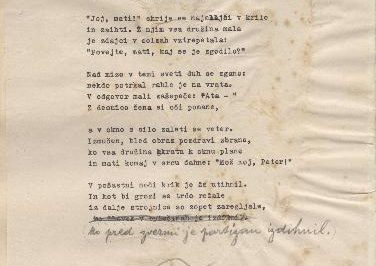 "Joj, mati!" skrije se najmlajši v krilo
in zaihti. Z njim vsa družina mala
je zdajci v solzah vztrepetala:
"Povejte, mati, kaj se je zgodilo?"
Nad mizo v temi sveti duh se zgane:
nekdo potrkal rahlo je na vrata.
V odgovor mali zašepče: "Ata - "
Z desnico žena si oči ponana,
a v okno s silo zaleti se veter.
Izmučen, bled obraz pozdravi zbrane,
ko vsa družina krutn k oknu plane
in mati komaj v srcu dahne: "Mož moj, Peter!"
V pošastni noči krik je že utihnil.
In kot bi grozi se trdo režale
iz dalje strojnice so zopet zaregljale,
ko pred zvermi je partizan izdihnil.